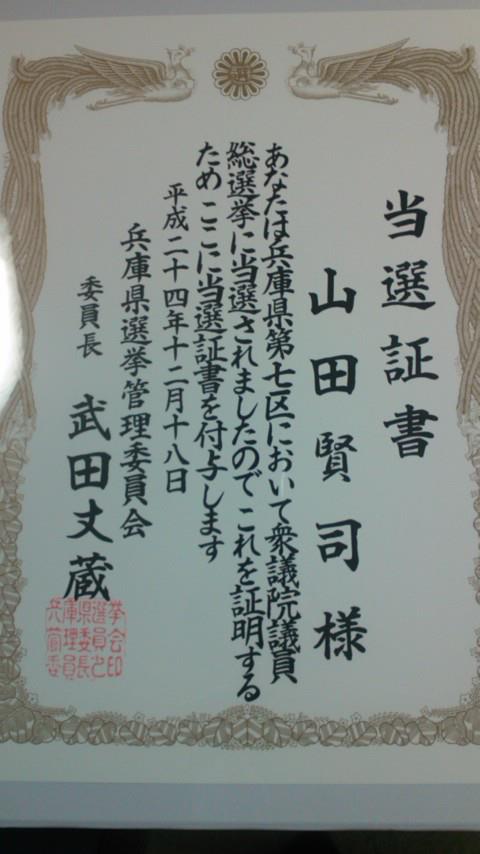 当選証書
山田賢司様
あなたは兵庫県第七区において衆議院議員
総選挙に当選されましたので これを証明する
ため ここに当選証書を付与します
平成二十四年十二月十八日
兵庫県選挙管理委員会
委員長 武田丈蔵
兵庫県選挙管理委員会委員長之印